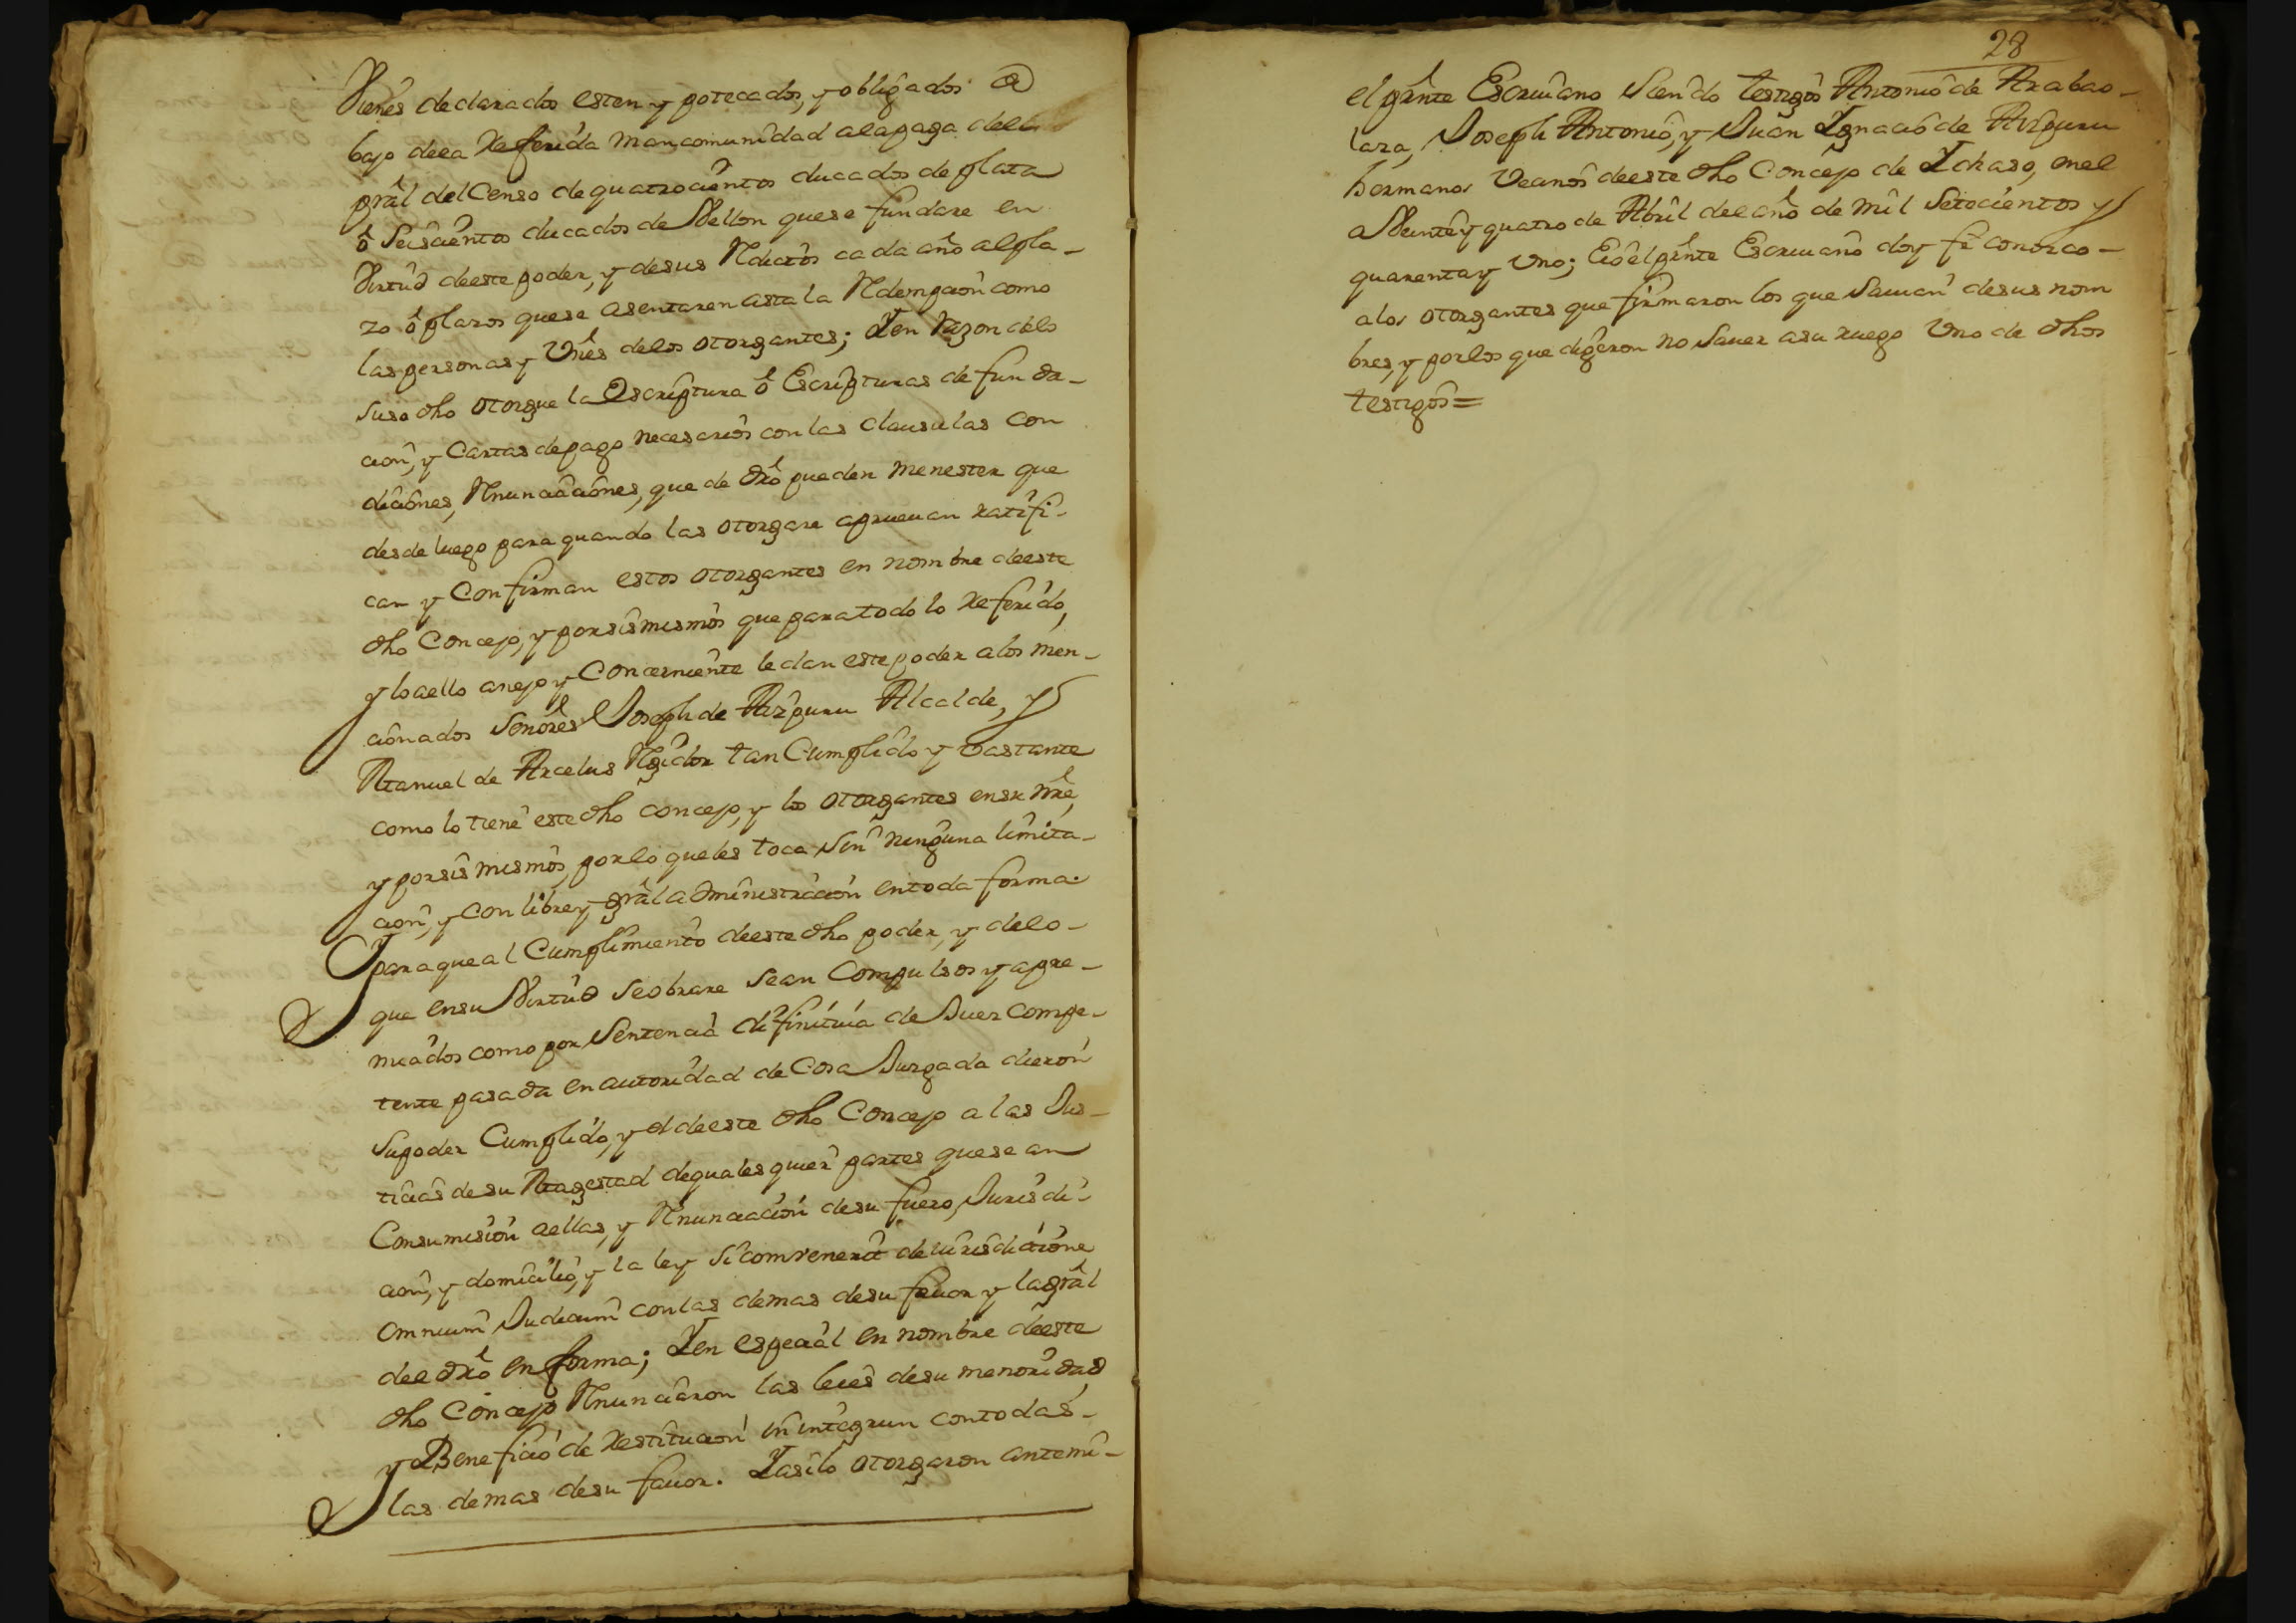 Vienes declarados esten y potecados, y obligados a
bajo de la Referida mancomunidad ala paga del
prâl del Censo de quatrocientos ducados de plata
ô Seiscientos ducados de Vellon que se fundare en
Virtud de este poder, y de sus Reditos cada año al pla-
zo ô plazos que se asentaren asta la Redempcion como
las personas y Vnês de los otorgantes; Y en Razon de lo
suso dho otorgue la Escriptura ô Escripturas de funda-
cion, y Cartas de pago necesarios con las clausulas con
diciones, Rnunciaciones, que de dro pueden menester que
desde luego para quando las otorgare aprueuan ratifi-
can y Confirman estos otorgantes en nombre de este
dho Concejo, y por sis mismos que para todo lo Referido,
y lo a ello anejo y Concerniente le dan este poder a los men-
cionados Señores Joseph de Aizpuru Alcalde, y
Manuel de Arcelus Regidor tan Cumplido y vastante
como lo tiene este dho concejo, y los otorgantes en su nre,
y por sis mismos, por lo que les toca sin ninguna limita-
cion, y con libre y grâl administracion en toda forma.
Y para que al Cumplimiento de este dho poder, y de lo-
que en su Virtud se obrare sean Compulsos y apre-
miados como por Sentencia difinitiuia de Juez compe-
tente pasada en autoridad de Cosa Juzgada dieron
su poder Cumplido, y el de este dho Concejo a las Jus-
ticias de su Magestad de quales quier partes que sean
Con sumision a ellas, y Rnunciacion de su fuero, Jurisdi-
cion, y domicilio, y la ley sicombenerit de iurisdicione
omnium Judicum con las demas de su fauor y la grâl
del dro en forma; Y en especial en nombre de este
dho Concejo Rnunciaron las leies de su menoridad
y Beneficio de Restitucion in integrun con todas-
las demas de su fauor. Y asi lo otorgaron ante mi-
28
el prête Escriuano siendo testigos Antonio de Arabao-
laza, Joseph Antonio, y Juan Ygnacio de Aizpuru
hermanos Vecinos de este dho Concejo de Ichaso, en el
a Veinte y quatro de Abril del año de mil Setecientos y
quarenta y Vno; E io el prête Escriuano doy fe conozco-
a los otorgantes que firmaron los que Sauian de sus nom
bres, y por los que digeron no Sauer a su ruego Vno de dhos
testigos=